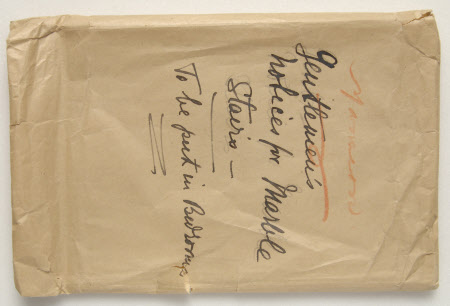 Gentlemen's
Notices for Marble
Stairs —
To be put in Bedrooms